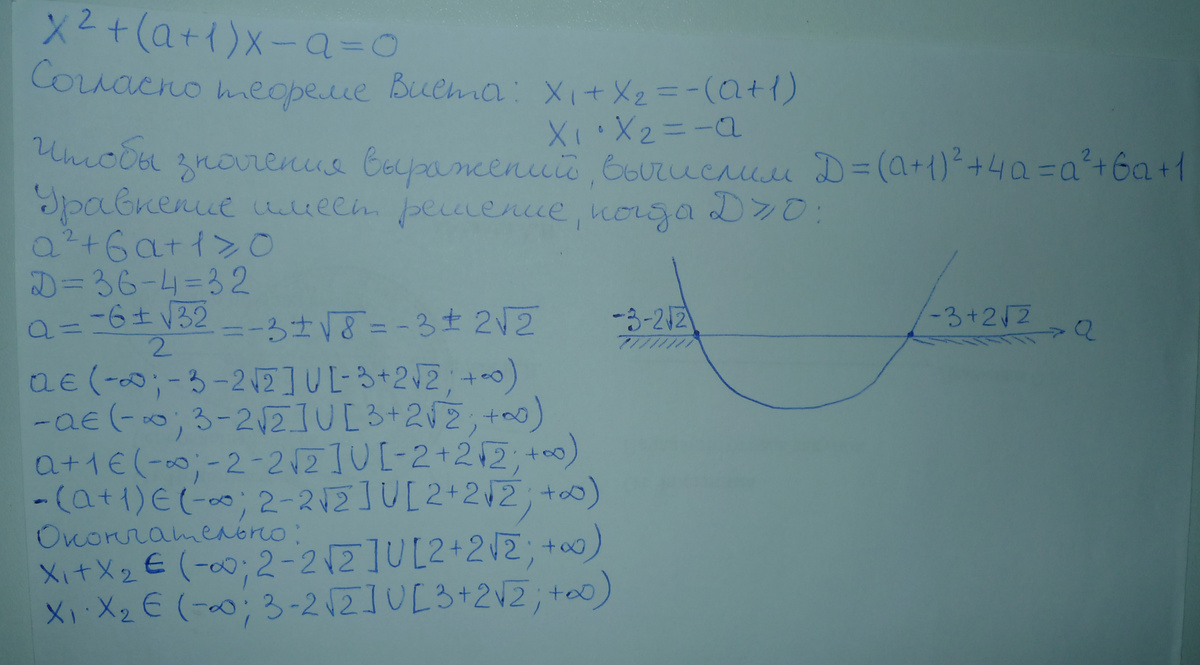 x² + (a+1)x − a = 0
Согласно теореме Виета: x₁ + x₂ = −(a+1)
x₁ · x₂ = −a
Чтобы значения выражений, вычислим D = (a+1)² + 4a = a² + 6a + 1
Уравнение имеет решение, когда D ⩾ 0:
a² + 6a + 1 ⩾ 0
D = 36 − 4 = 32
a = (−6 ± √32)/2 = −3 ± √8 = −3 ± 2√2
−3−2√2 −3+2√2 a
a ∈ (−∞; −3 − 2√2] U [−3+2√2; +∞)
−a ∈ (−∞; 3 − 2√2] U [3+2√2; +∞)
a+1 ∈ (−∞; −2 − 2√2] U [−2+2√2; +∞)
−(a+1) ∈ (−∞; 2 − 2√2] U [2+2√2; +∞)
Окончательно:
x₁ + x₂ ∈ (−∞; 2 − 2√2] U [2+2√2; +∞)
x₁ · x₂ ∈ (−∞; 3 − 2√2] U [3+2√2; +∞)